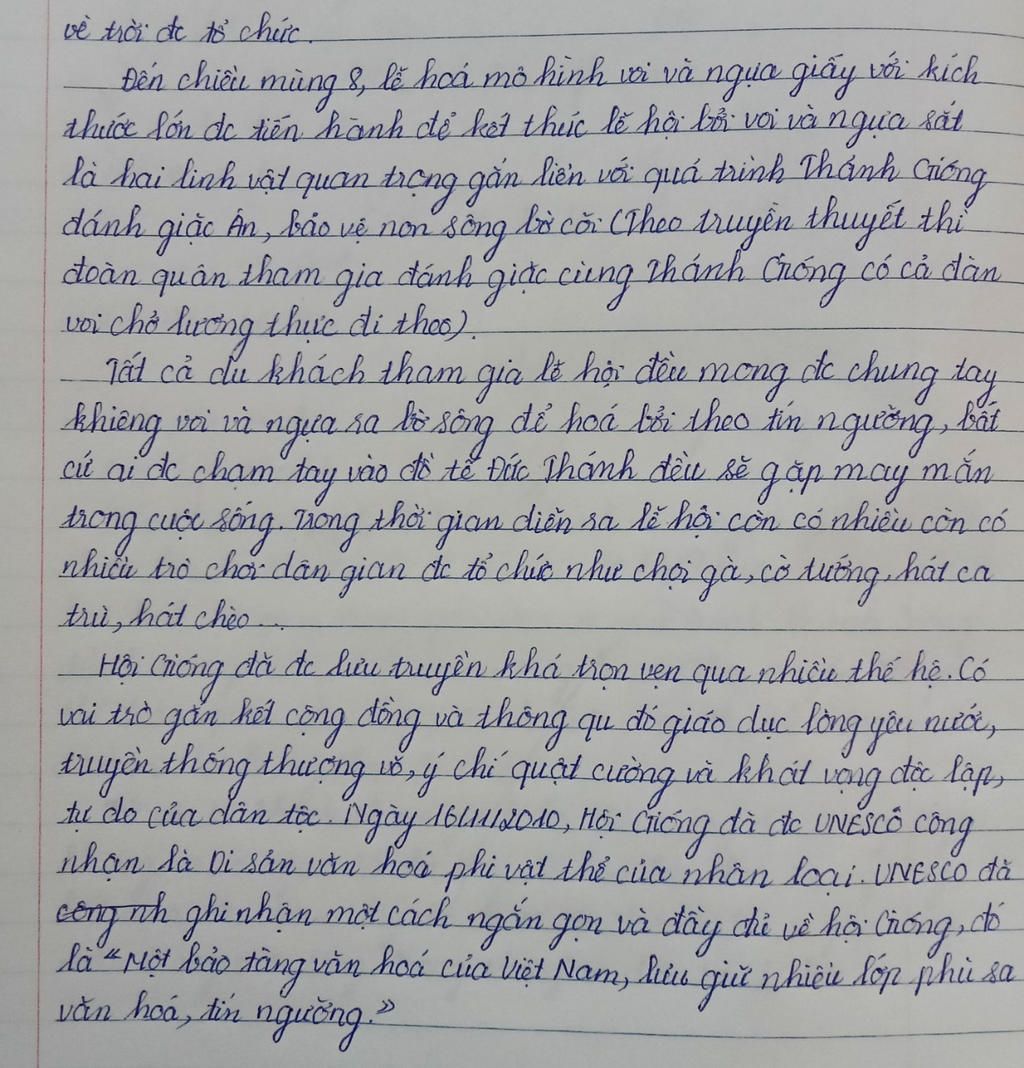 về trời đc tổ chức.
Đến chiều mùng 8, lễ hoá mô hình voi và ngựa giấy với kích
thước lớn đc tiến hành để kết thúc lễ hội bởi voi và ngựa sắt
là hai linh vật quan trọng gắn liền với quá trình Thánh Gióng
đánh giặc Ân, bảo vệ non sông bờ cõi (Theo truyền thuyết thì
đoàn quân tham gia đánh giặc cùng Thánh Gióng có cả đàn
voi chở lương thực đi theo).
Tất cả du khách tham gia lễ hội đều mong đc chung tay
khiêng voi và ngựa ra bờ sông để hoá bởi theo tín ngưỡng, bất
cứ ai đc chạm tay vào đồ tế Đức Thánh đều sẽ gặp may mắn
trong cuộc sống. Trong thời gian diễn ra lễ hội còn có nhiều còn có
nhiều trò chơi dân gian đc tổ chức như chọi gà, cờ tướng, hát ca
trù, hát chèo...
Hội Gióng đã đc lưu truyền khá trọn vẹn qua nhiều thế hệ. Có
vai trò gắn kết cộng đồng và thông qu đó giáo dục lòng yêu nước,
truyền thống thượng võ, ý chí quật cường và khát vọng độc lập,
tự do của dân tộc. Ngày 16/11/2010, Hội Gióng đã đc UNESCÔ công
nhận là Di sản văn hoá phi vật thể của nhân loại. UNESCO đã
công nh ghi nhận một cách ngắn gọn và đầy đủ về hội Gióng, đó
là "Một bảo tàng văn hoá của Việt Nam, lưu giữ nhiều lớp phù sa
văn hoá, tín ngưỡng."